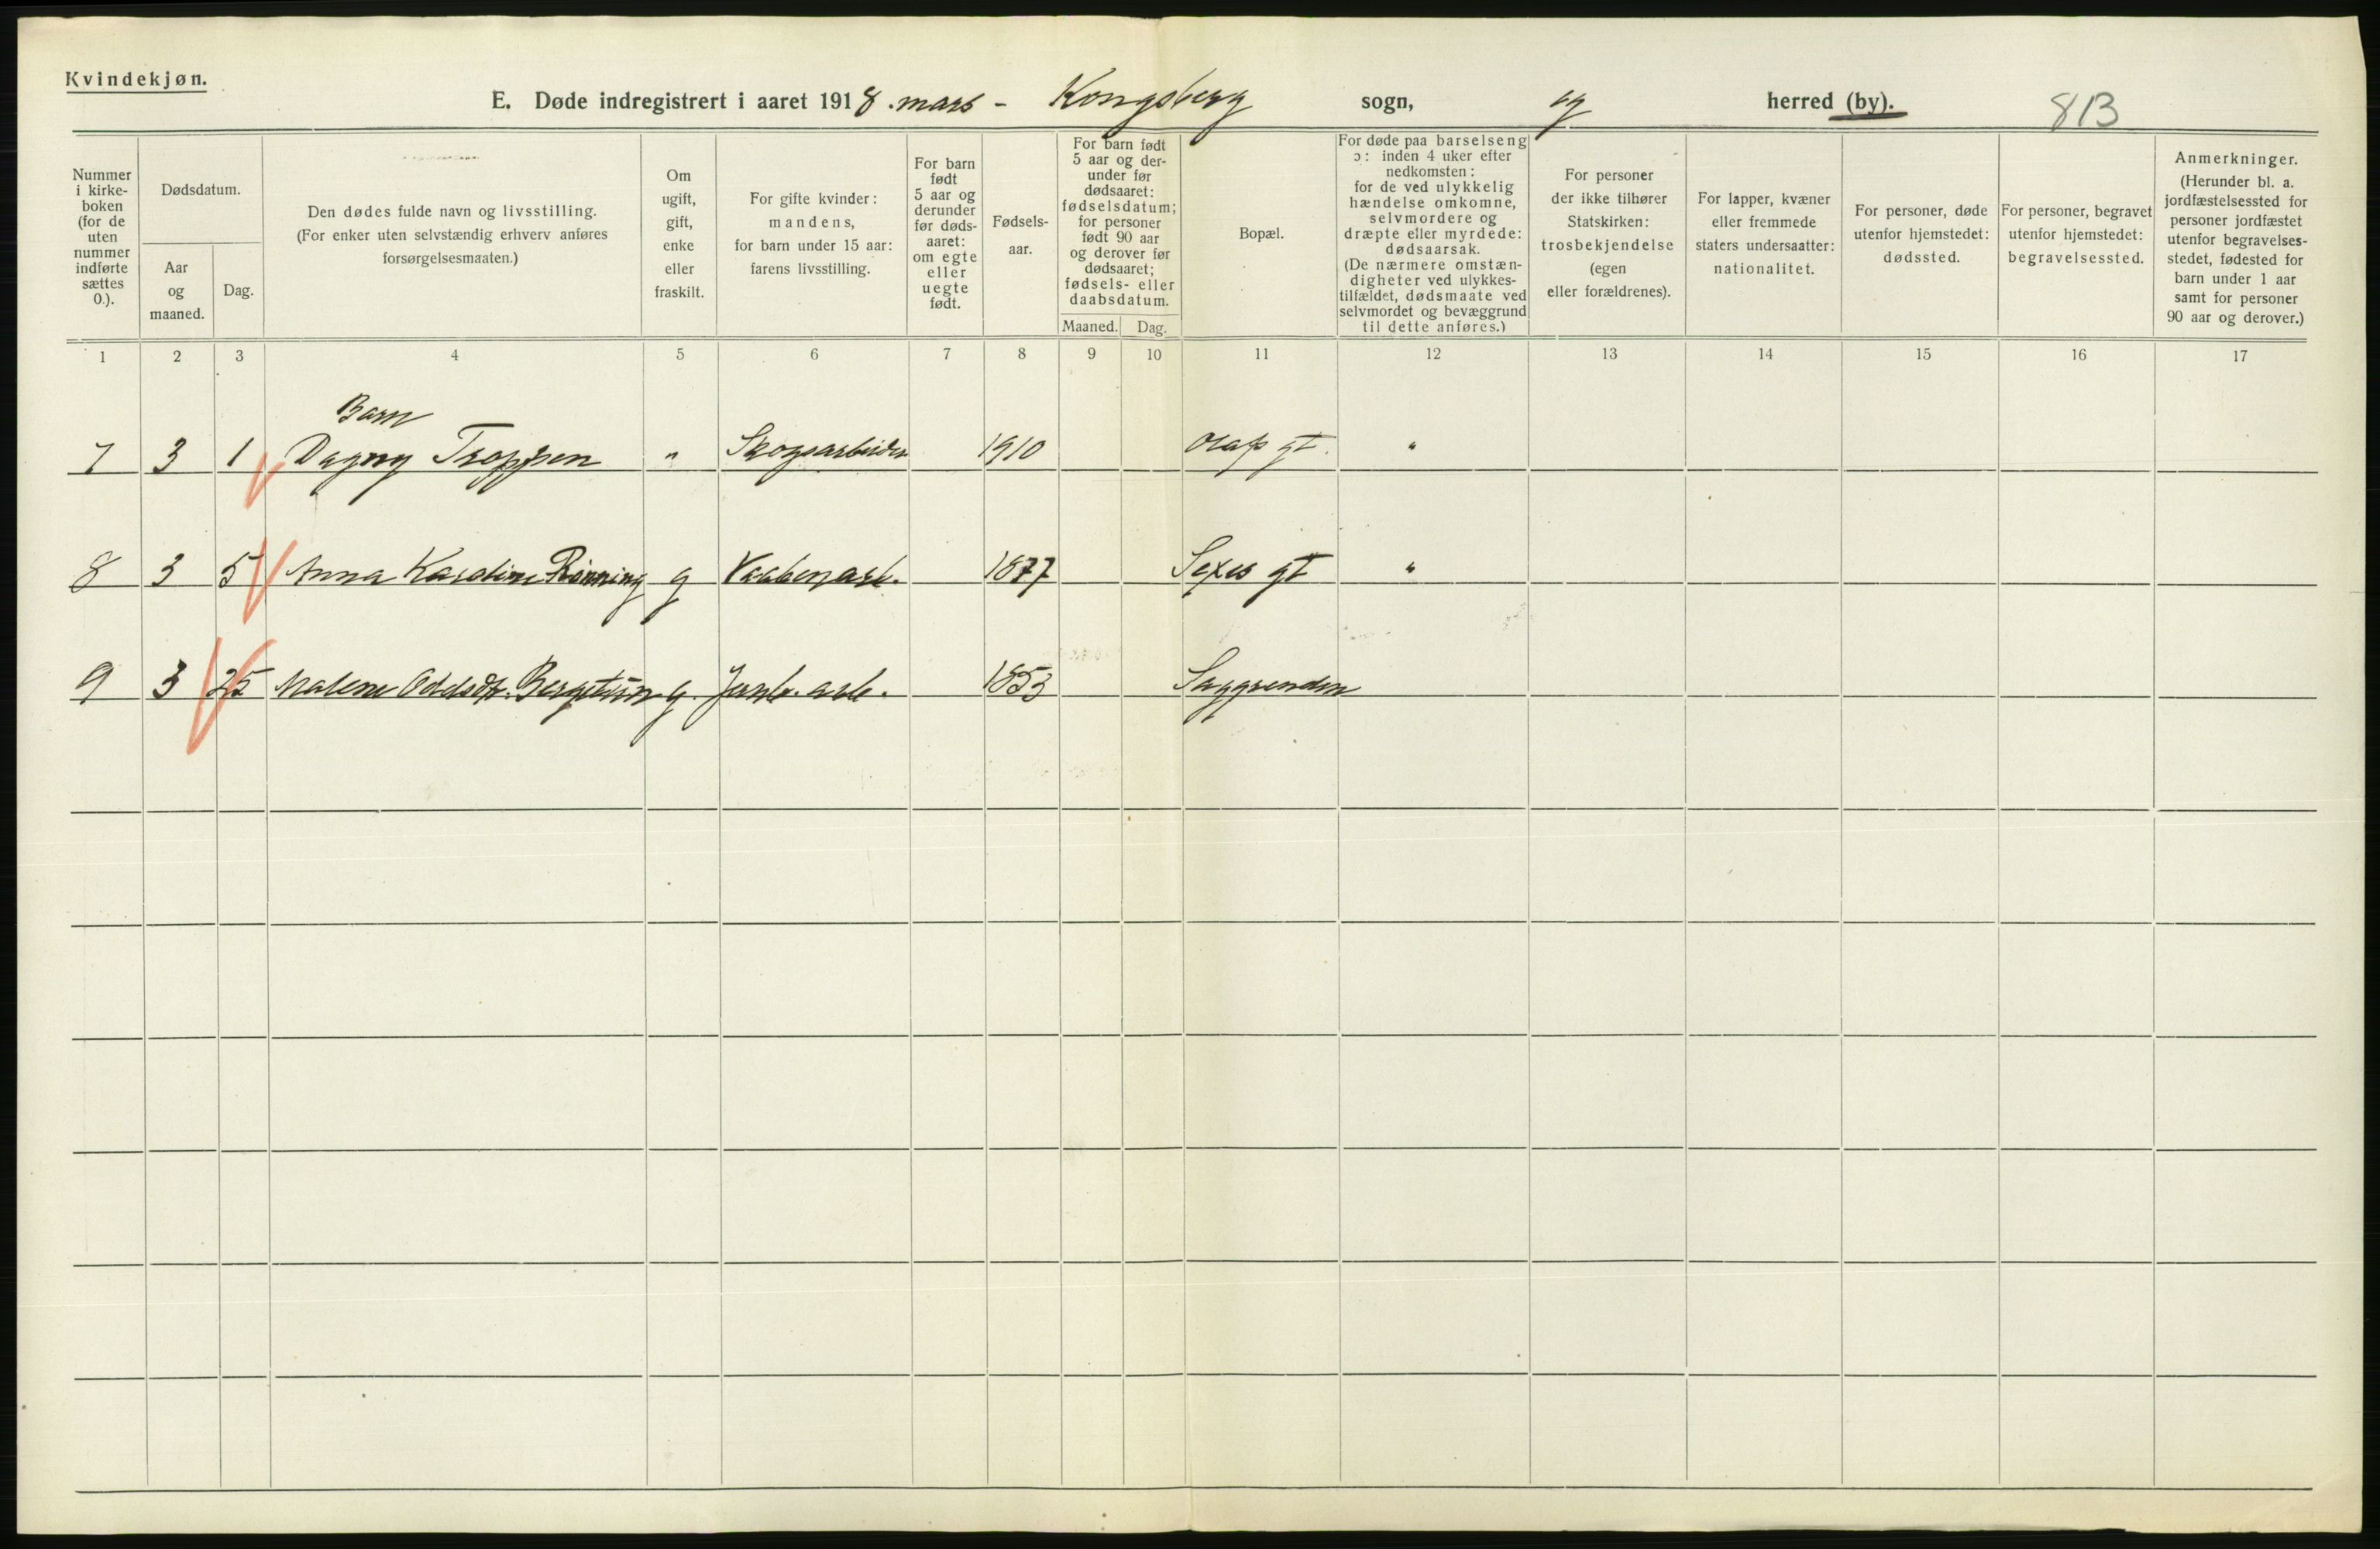 Kvindekjøn.
E. Døde indregistrert i aaret 1918. mars - Kongsberg sogn, og herred (by). 813
Nummer i kirke- boken (for de uten nummer indførte sættes 0.).
Dødsdatum.
Aar og maaned.
Dag.
Den dødes fulde navn og livsstilling. (For enker uten selvstændig erhverv anføres forsørgelsesmaaten.)
Om ugift, gift, enke eller fraskilt.
For gifte kvinder: mandens, for barn under 15 aar: farens livsstilling.
For barn født 5 aar og derunder før døds- aaret: om egte eller uegte født.
Fødsels- aar.
For barn født 5 aar og der- under før dødsaaret: fødselsdatum; for personer født 90 aar og derover før dødsaaret; fødsels- eller daabsdatum.
Maaned. Dag.
Bopæl.
For døde paa barselseng ɔ: inden 4 uker efter nedkomsten: for de ved ulykkelig hændelse omkomne, selvmordere og dræpte eller myrdede: dødsaarsak. (De nærmere omstæn- digheter ved ulykkes- tilfældet, dødsmaate ved selvmordet og bevæggrund til dette anføres.)
For personer der ikke tilhører Statskirken: trosbekjendelse (egen eller forældrenes).
For lapper, kvæner eller fremmede staters undersaatter: nationalitet.
For personer, døde utenfor hjemstedet: dødssted.
For personer, begravet utenfor hjemstedet: begravelsessted.
Anmerkninger. (Herunder bl. a. jordfæstelsessted for personer jordfæstet utenfor begravelses- stedet, fødested for barn under 1 aar samt for personer 90 aar og derover.)
1 2 3 4 5 6 7 8 9 10 11 12 13 14 15 16 17
Barn
7 3 1 Dagny Troppen " Skogsarbeider 1910 Olafs gt. "
8 3 5 Anna Karoline Rønning g Vaabenarb. 1877 Sexes gt "
9 3 25 Malene Oddsdt. g. Jernb. arb. 1853 Saggrenden